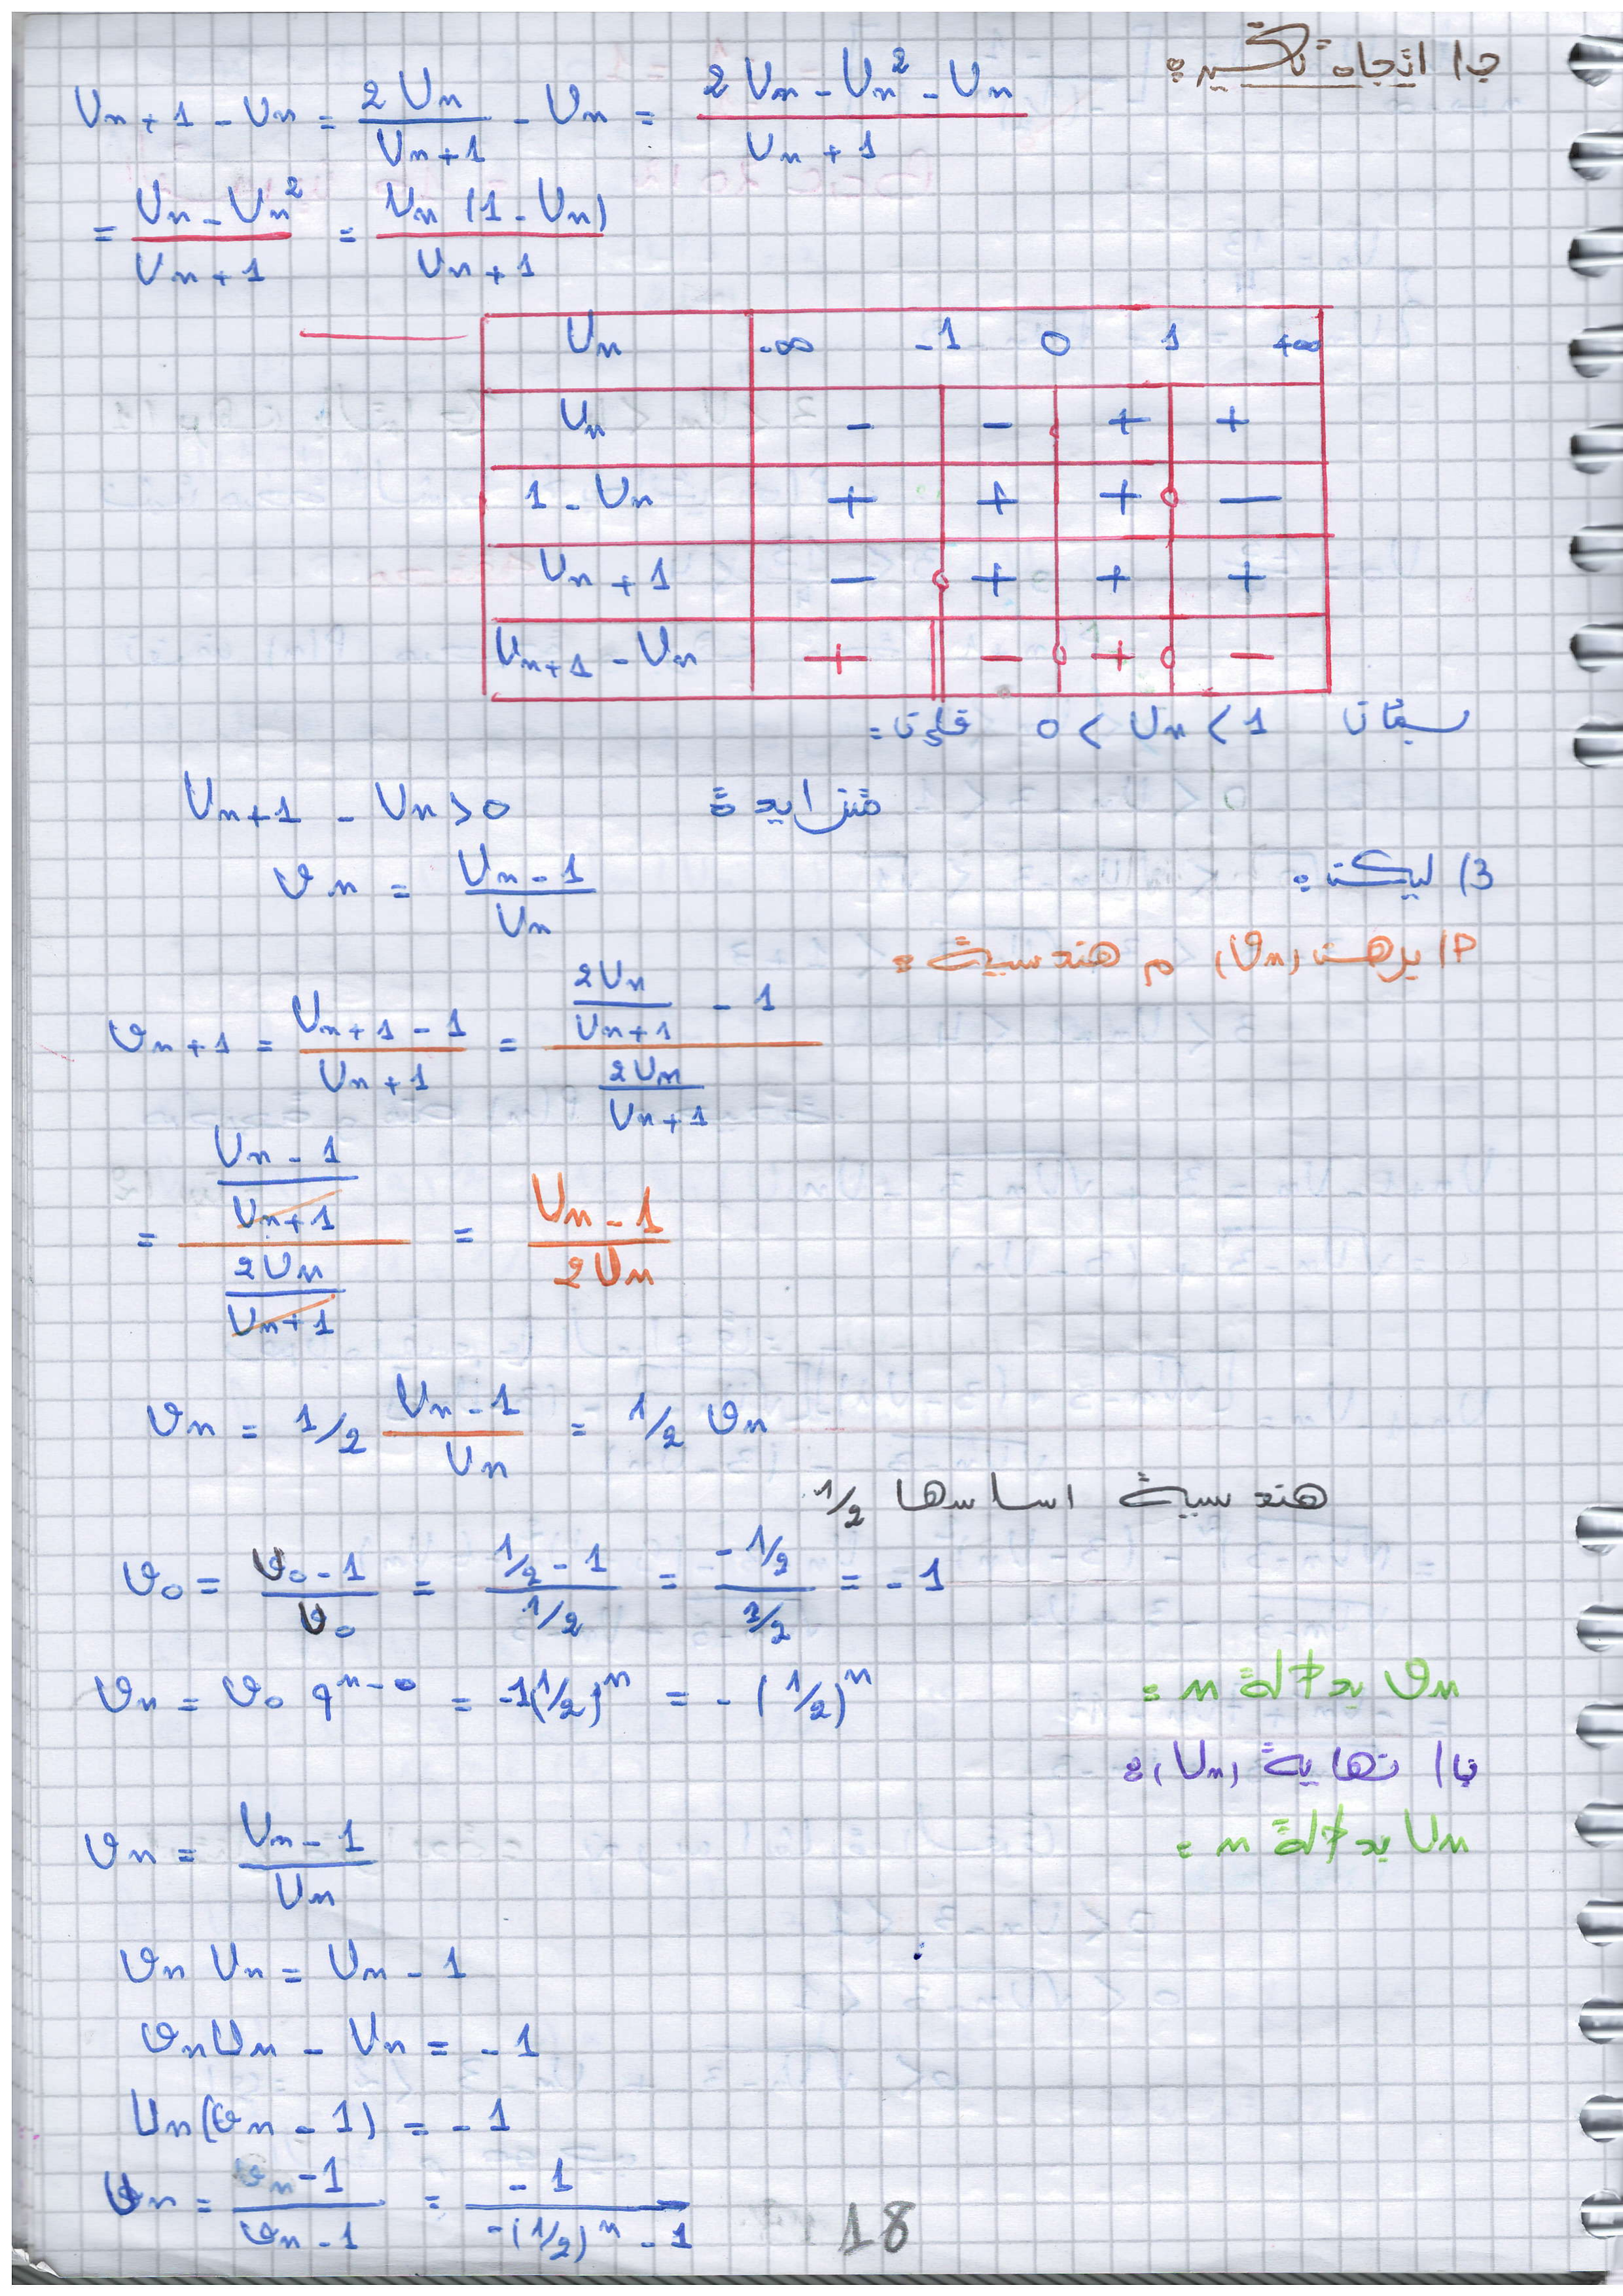 جـ/ اتجاه تغيره:
Un+1 - Un = 2Un / Un+1 - Un = 2Un - Un² - Un / Un+1
= Un - Un² / Un+1 = Un (1 - Un) / Un+1
Un -∞ -1 0 1 +∞
Un - - + +
1 - Un + + + -
Un + 1 - + + +
Un+1 - Un + - + -
بما أن 0 < Un < 1 فإن =
Un+1 - Un > 0 متزايدة
3/ ليكن:
𝓋n = Un - 1 / Un
أ/ برهن (𝓋n) م هندسية =
𝓋n+1 = Un+1 - 1 / Un+1 = (2Un / Un+1 - 1) / (2Un / Un+1)
= (Un - 1 / Un+1) / (2Un / Un+1) = Un - 1 / 2Un
𝓋n = 1/2 Un - 1 / Un = 1/2 𝓋n
هندسية اساسها 1/2
𝓋0 = U0 - 1 / U0 = 1/2 - 1 / 1/2 = -1/2 / 1/2 = -1
𝓋n بدلالة n =
𝓋n = 𝓋0 q^n-0 = -1(1/2)^n = -(1/2)^n
ب/ نهاية (Un):
Un بدلالة n =
𝓋n = Un - 1 / Un
𝓋n Un = Un - 1
𝓋n Un - Un = -1
Un(𝓋n - 1) = -1
Un = -1 / 𝓋n - 1 = -1 / -(1/2)^n - 1
18